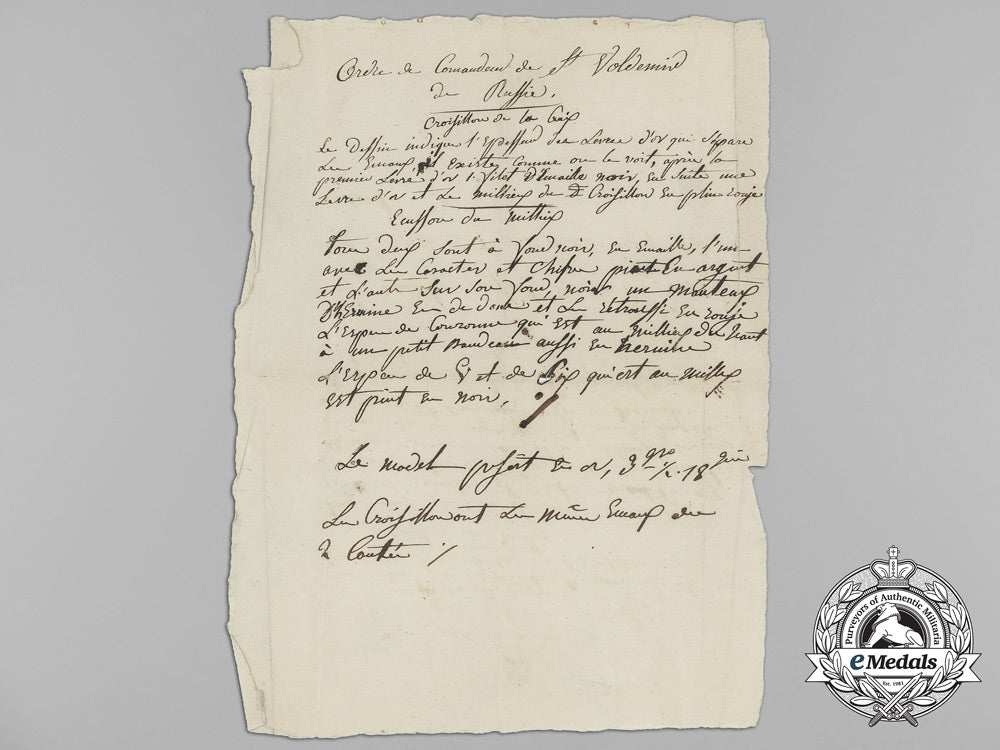 Ordre de Comandeur de St Voldemird
de Russie.
Croisillon de la Croix
Le Dessin indique l'Epesseur des Levres d'or qui Sépare
Les Emaux, il existes comme on le voit, après la
premier Levre d'or 1. filet d'Emaille noir, en Suite une
Levre d'or et Le millieux du Croisillon en plein rouje
Ecusson du Millieux
Tous deux sont à fond noir, en Emaille, l'un
avec Les Caracter et Chifre peint En argent
et L'autre Sur son fond, noir un Manteaux
D'hermine En de dans et Les retroussi En rouje
L'Espece de Couronne qui est au Millieux du haut
à un petit Bandeau aussi En hermine
L'Espece de V et de qui est au millieux
est peint en noir.
Le model pesoit en or, 3 gros 1/2. 18 grain
Les Croisillon ont Les même Emaux des
2 Coutés
Purveyors of Authentic Militaria
eMedals
Est. 1981